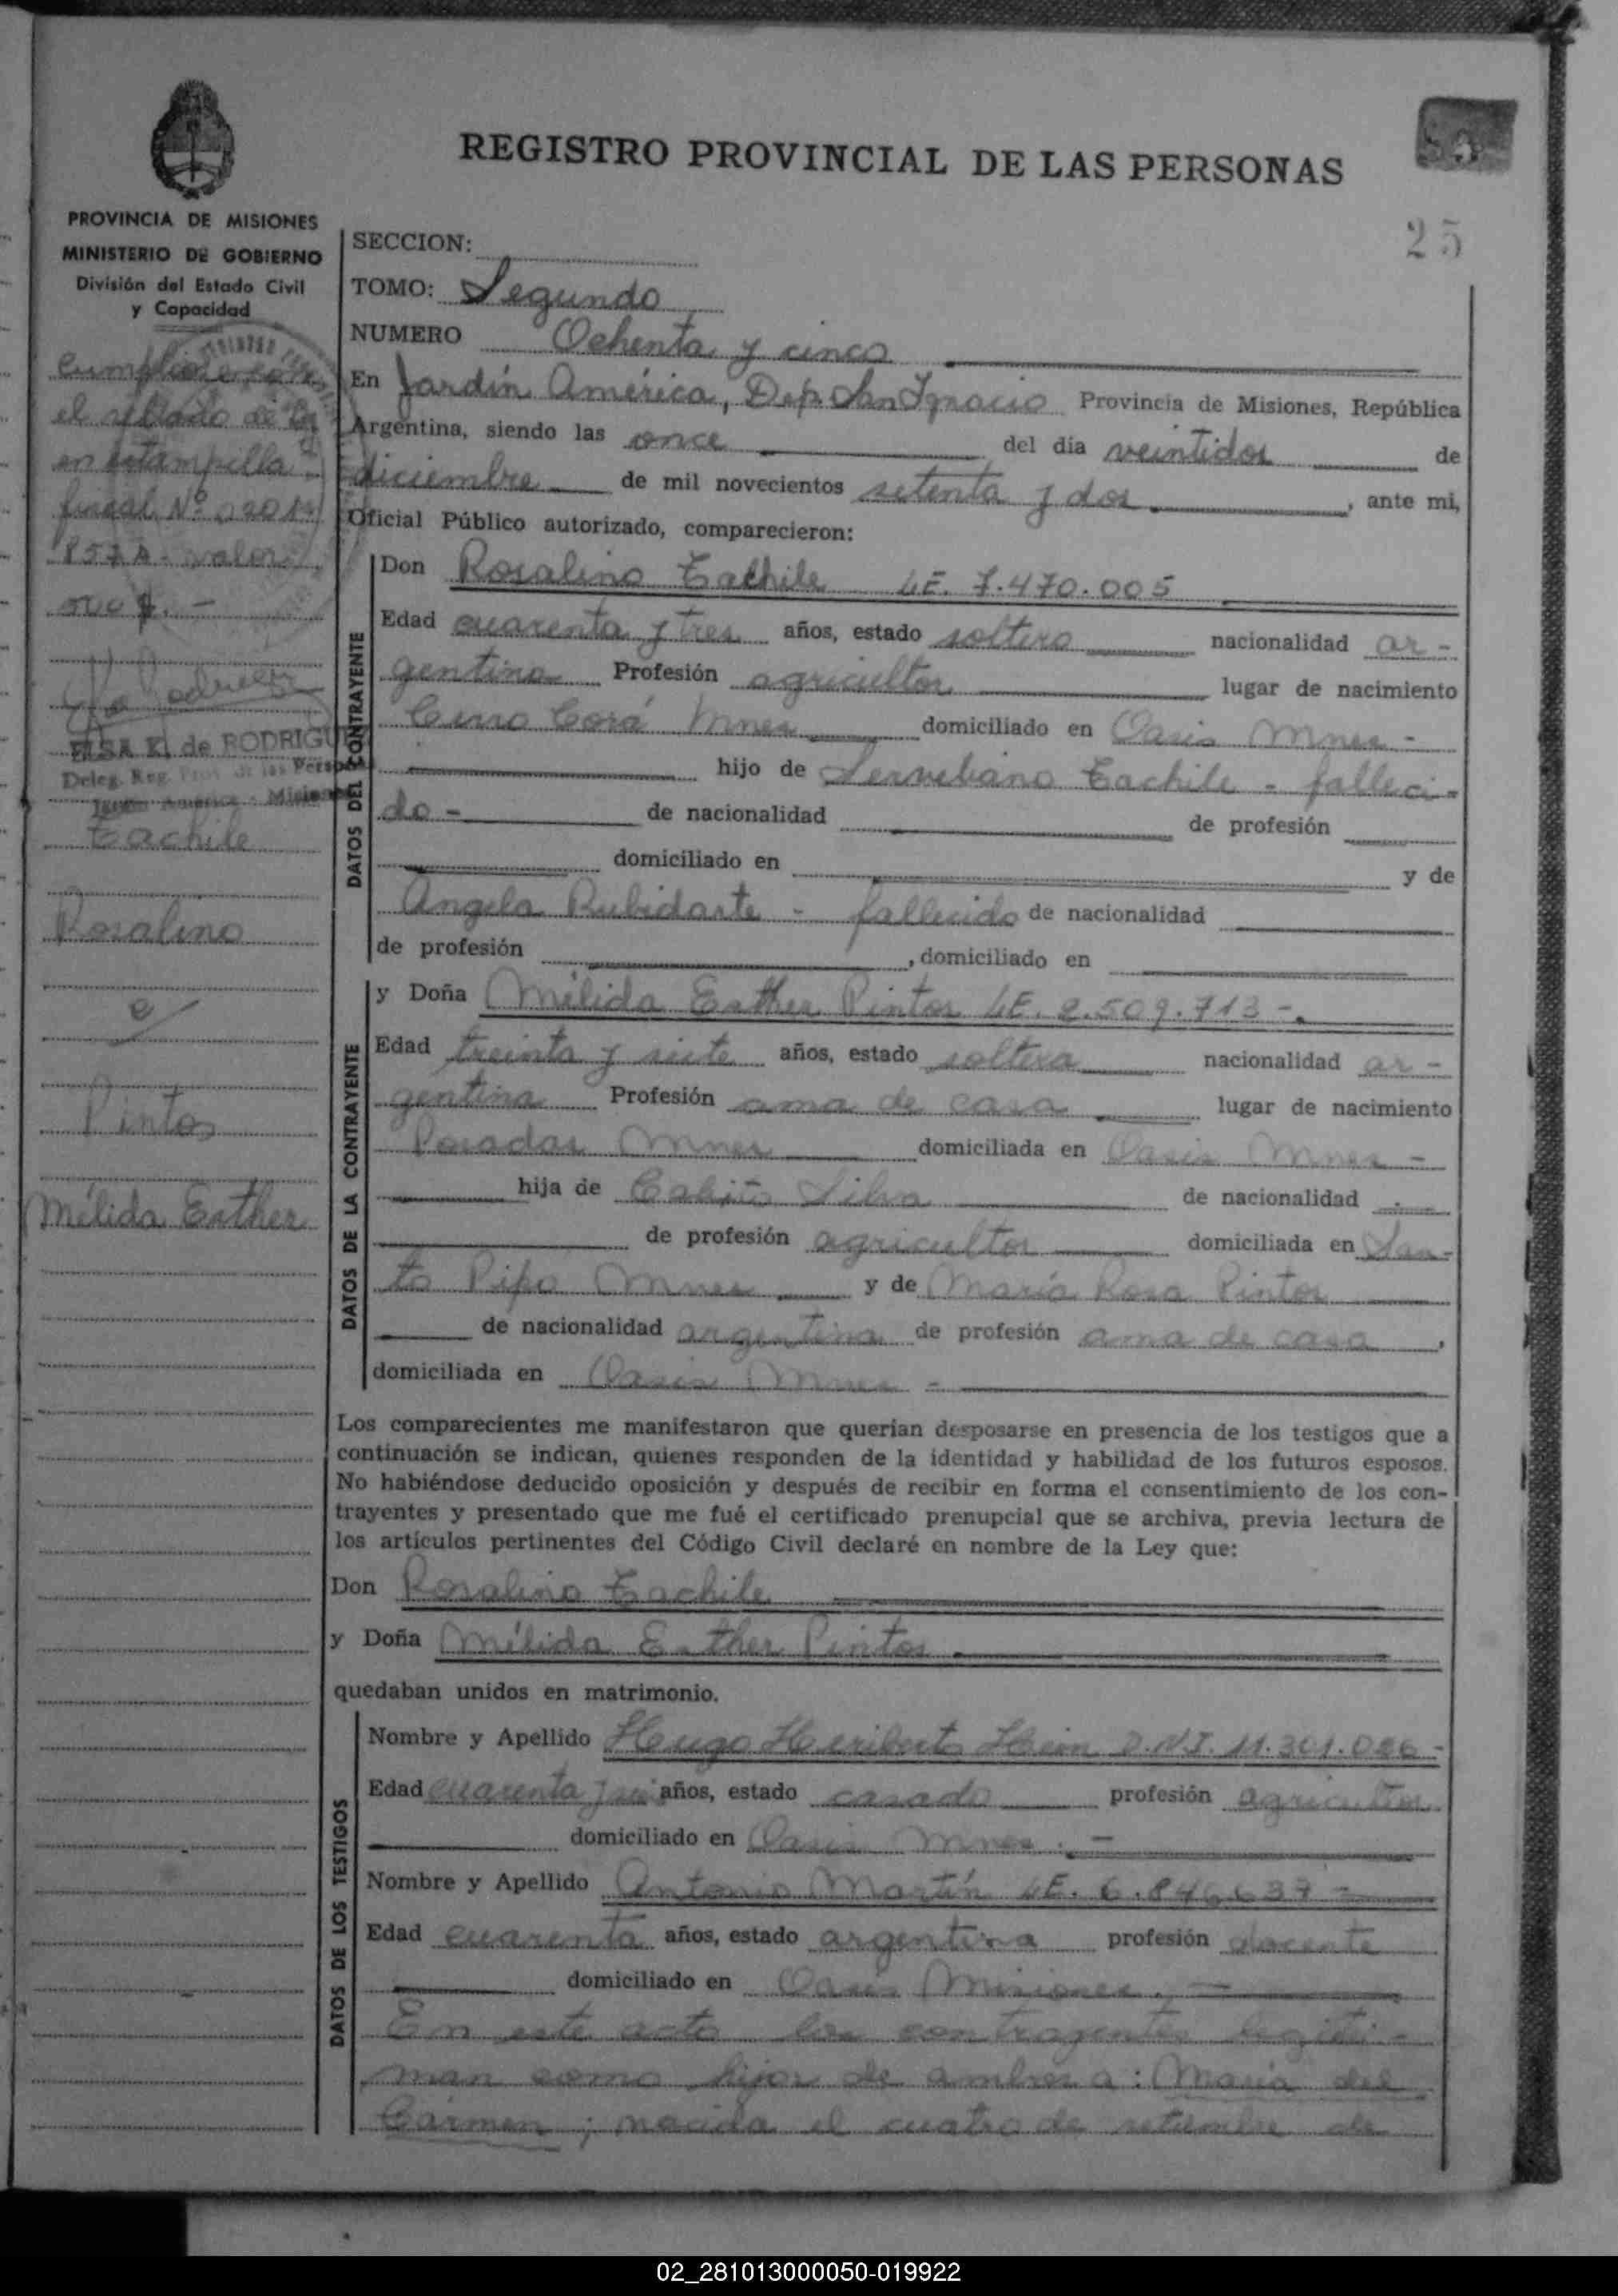 REGISTRO PROVINCIAL DE LAS PERSONAS
25
PROVINCIA DE MISIONES
MINISTERIO DE GOBIERNO
División del Estado Civil
y Capacidad
el sellado de
en estampilla
fiscal Nº
857A - valor
ELSA K. de RODRIGU
Deleg. Reg. Prov. de las Person
Jardín América - Misiones
Tachile
Rosalino
c/
Pintos
Mélida Esther
SECCION:
TOMO: Segundo
NUMERO Ochenta y cinco
En Jardín América, Dep. San Ignacio Provincia de Misiones, República
Argentina, siendo las once del día veintidos de
diciembre de mil novecientos setenta y dos, ante mi,
Oficial Público autorizado, comparecieron:
DATOS DEL CONTRAYENTE
Don Rosalino Tachile LE. 7.470.005
Edad cuarenta y tres años, estado soltero nacionalidad ar-
gentina Profesión agricultor lugar de nacimiento
Cerro Corá Mnes domiciliado en Oasis Mnes -
hijo de Tachile - falleci-
do - de nacionalidad de profesión
domiciliado en y de
Angela Rubidarte - fallecida de nacionalidad
de profesión , domiciliado en
DATOS DE LA CONTRAYENTE
y Doña Mélida Esther Pintos LE. 2.509.713 -.
Edad treinta y siete años, estado soltera nacionalidad ar-
gentina Profesión ama de casa lugar de nacimiento
Posadas Mnes domiciliada en Oasis Mnes -
hija de Silva de nacionalidad
de profesión agricultor domiciliada en San-
to Pipo Mnes y de María Rosa Pintos
de nacionalidad argentina de profesión ama de casa,
domiciliada en Oasis Mnes -
Los comparecientes me manifestaron que querían desposarse en presencia de los testigos que a
continuación se indican, quienes responden de la identidad y habilidad de los futuros esposos.
No habiéndose deducido oposición y después de recibir en forma el consentimiento de los con-
trayentes y presentado que me fué el certificado prenupcial que se archiva, previa lectura de
los artículos pertinentes del Código Civil declaré en nombre de la Ley que:
Don Rosalino Tachile
y Doña Mélida Esther Pintos
quedaban unidos en matrimonio.
DATOS DE LOS TESTIGOS
Nombre y Apellido Hugo Heriberto D.N.I. 11.301.026 -
Edad cuarenta y seis años, estado casado profesión agricultor
domiciliado en Oasis Mnes. -
Nombre y Apellido Antonio Martín LE. 6.846.637 -
Edad cuarenta años, estado argentina profesión docente
domiciliado en Oasis Misiones. -
En este acto los contrayentes legiti-
man como hijos de ambos a: María del
Carmen; nacida el cuatro de setiembre de
02_281013000050-019922